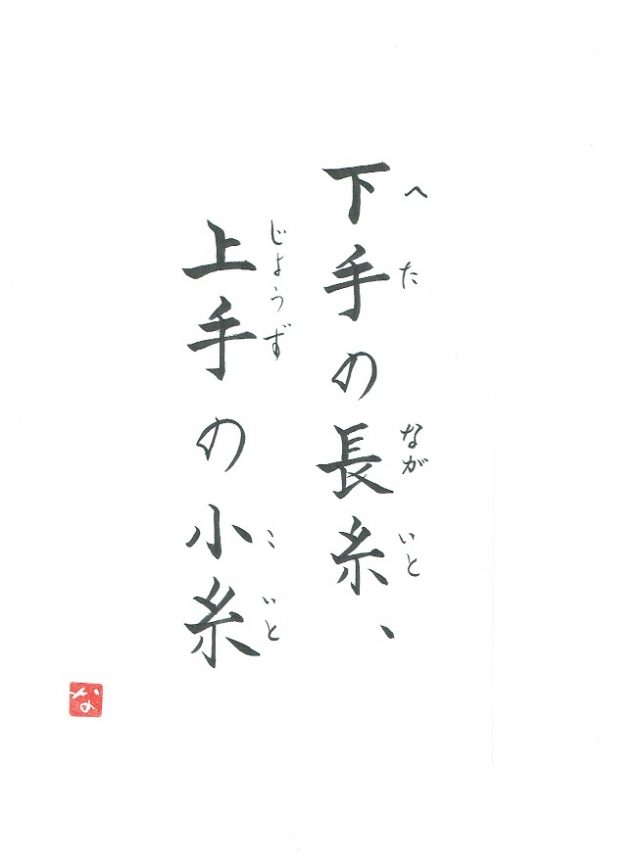 下手の長糸、
へたながいと
上手の小糸
じょうずこいと
な